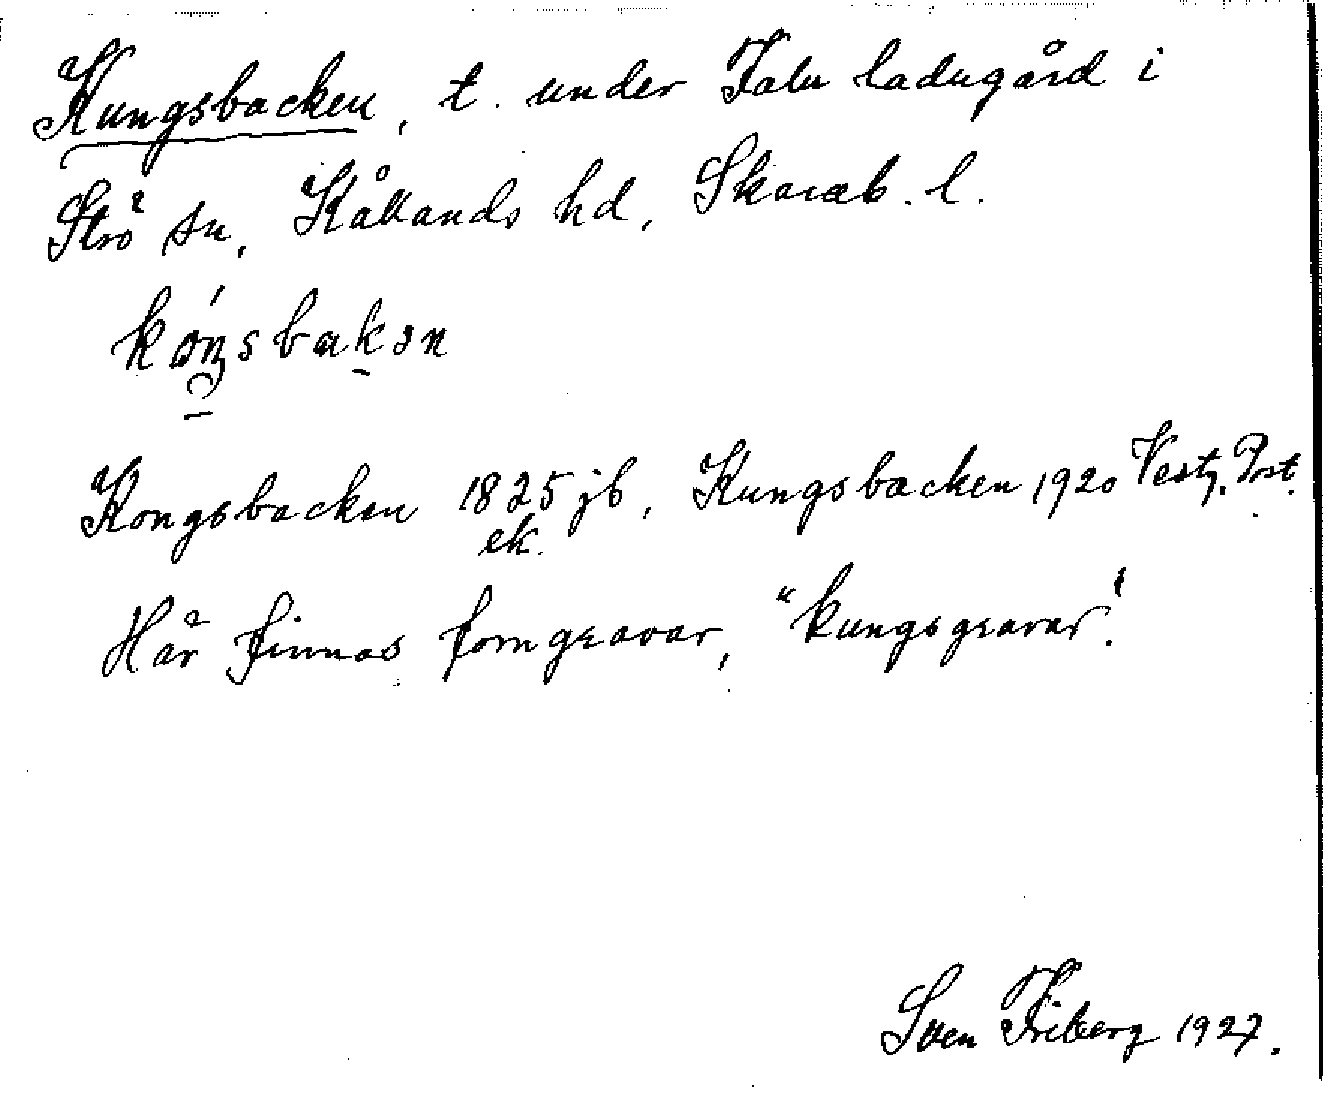 Kungsbacken, t. under Falu ladugård i
Strö sn, Kållands hd, Skarab. l.
kóŋsbakən
Kongsbacken 1825 jb, Kungsbacken 1920 Vestg. Post.
ek.
Här finnas forngravar, "kungsgravar".
Sven Friberg 1927.